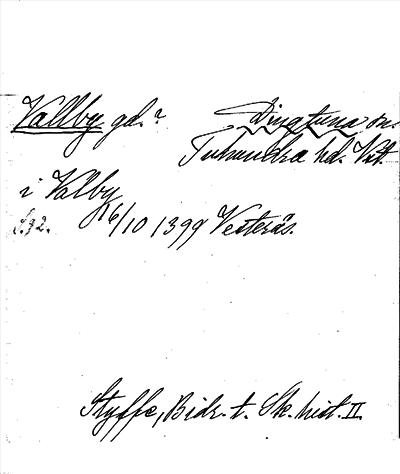 Vallby gd.? Dingtuna sn.
Tuhundra hd. Vstm.
i Valby
S. 92. 16/10 1399 Vesterås.
Styffe, Bidr. t. Sk. hist. II.